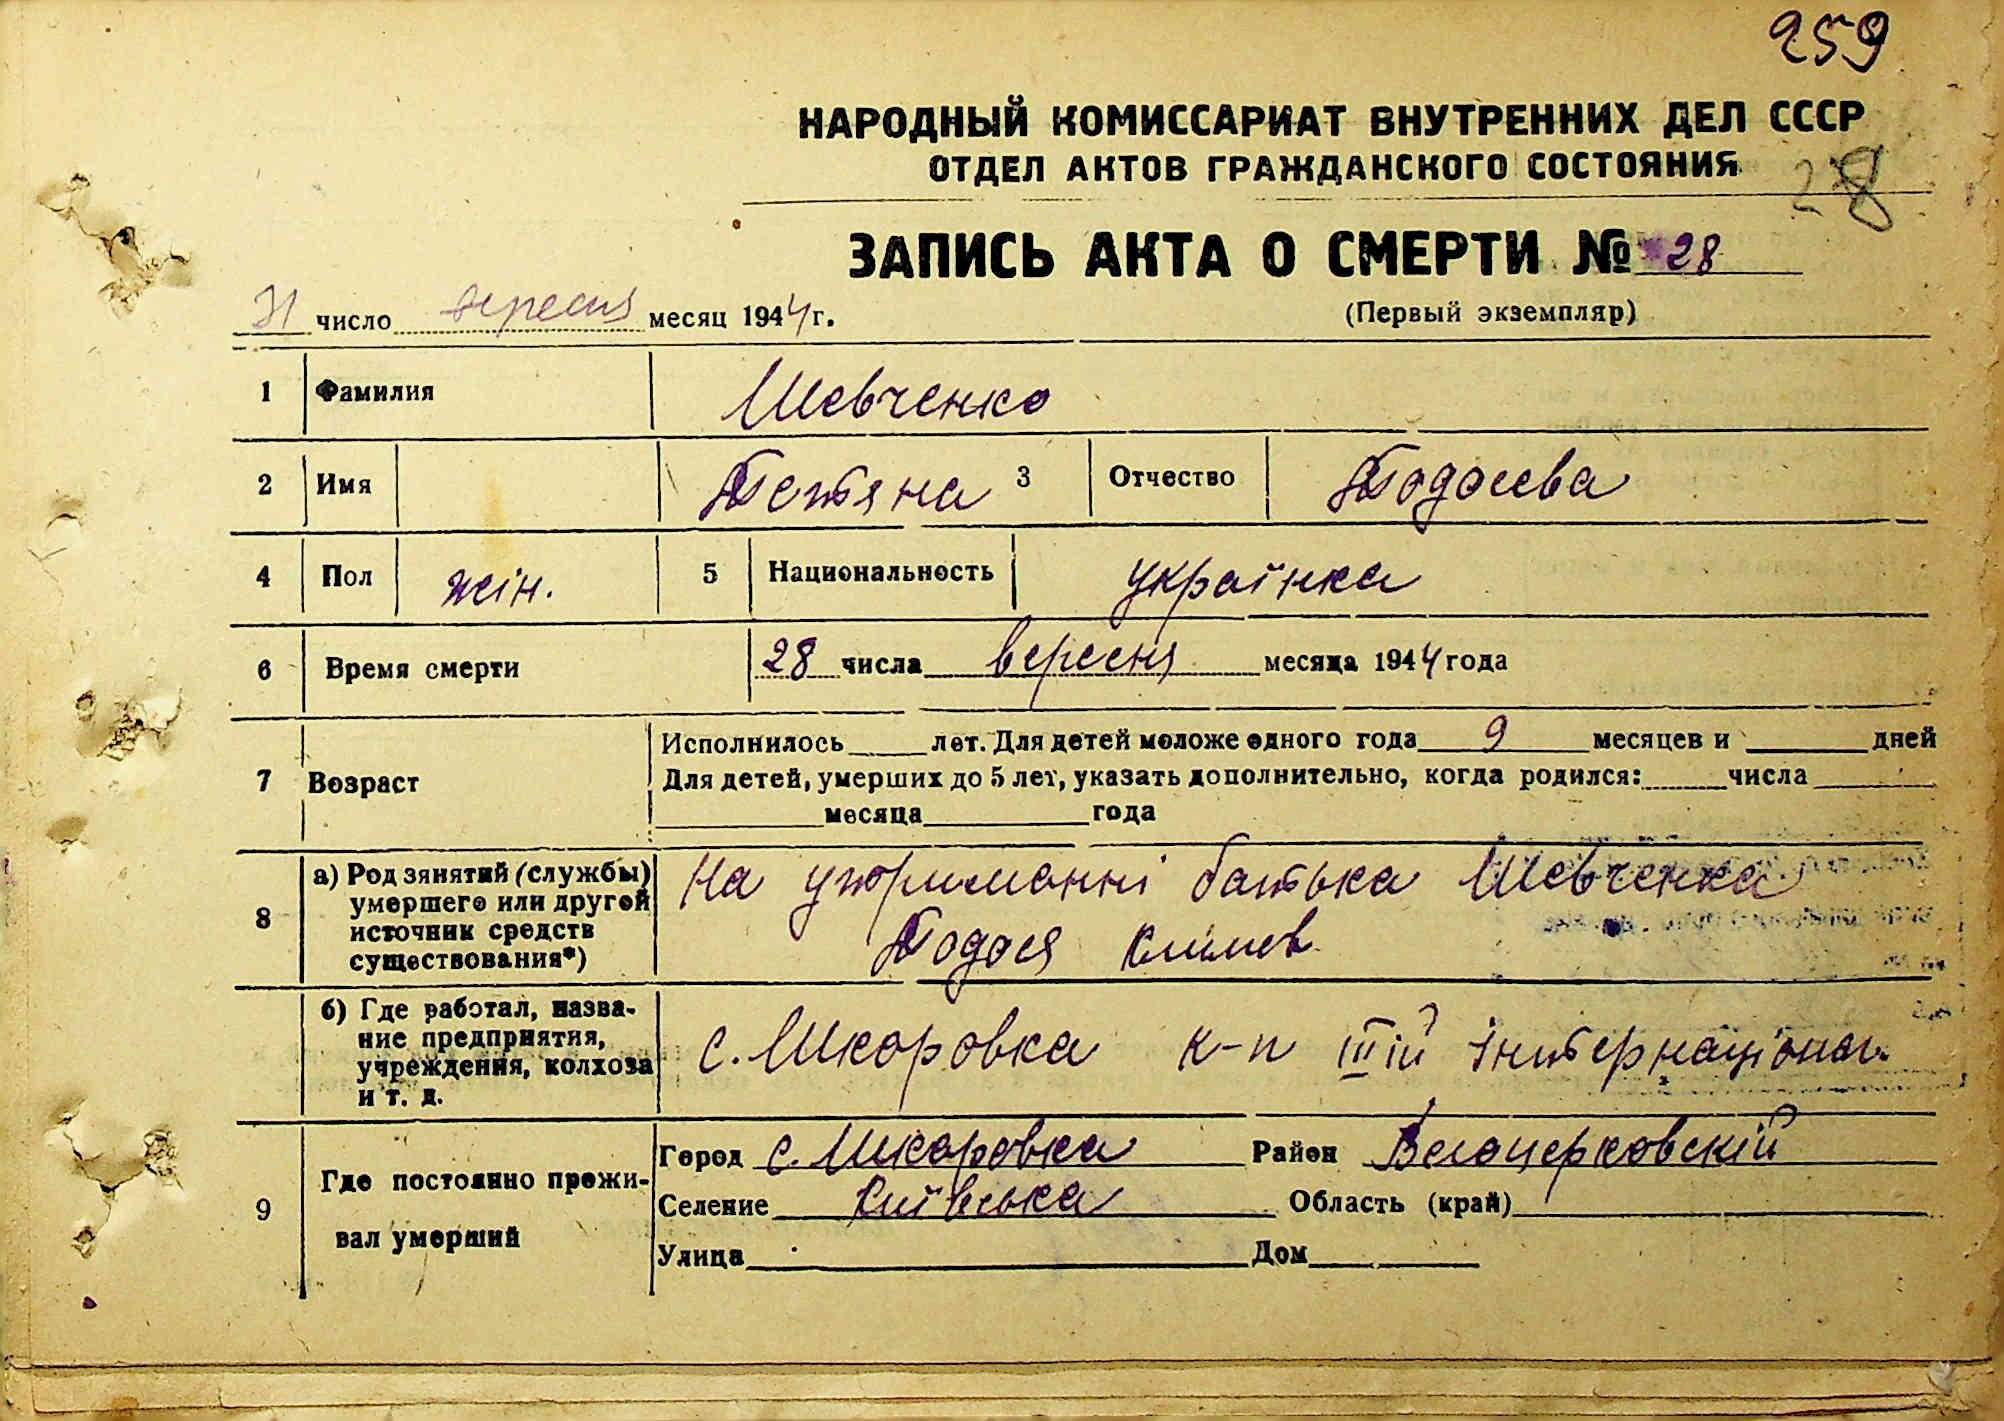 259
НАРОДНЫЙ КОМИССАРИАТ ВНУТРЕННИХ ДЕЛ СССР
ОТДЕЛ АКТОВ ГРАЖДАНСКОГО СОСТОЯНИЯ
28
ЗАПИСЬ АКТА О СМЕРТИ № 28
31 число вересня месяц 1944 г.
(Первый экземпляр)
1 Фамилия Шевченко
2 Имя Тетяна 3 Отчество Тодосева
4 Пол жін. 5 Национальность українка
6 Время смерти 28 числа вересня месяца 1944 года
Исполнилось лет. Для детей моложе одного года 9 месяцев и дней
7 Возраст Для детей, умерших до 5 лет, указать дополнительно, когда родился: числа
месяца года
8 а) Род зянятий (службы) На утриманні батька Шевченка
умершего или другой
источник средств Тодося Климов
существования*)
б) Где работал, назва-
ние предприятия, с. Шкоровка к-п IIIій інтернаціонал.
учреждения, колхоза
и т. д.
9 Где постоянно прожи-
вал умерший
Город с. Шкаровка Район Белоцерковскій
Селение Київська Область (край)
Улица Дом